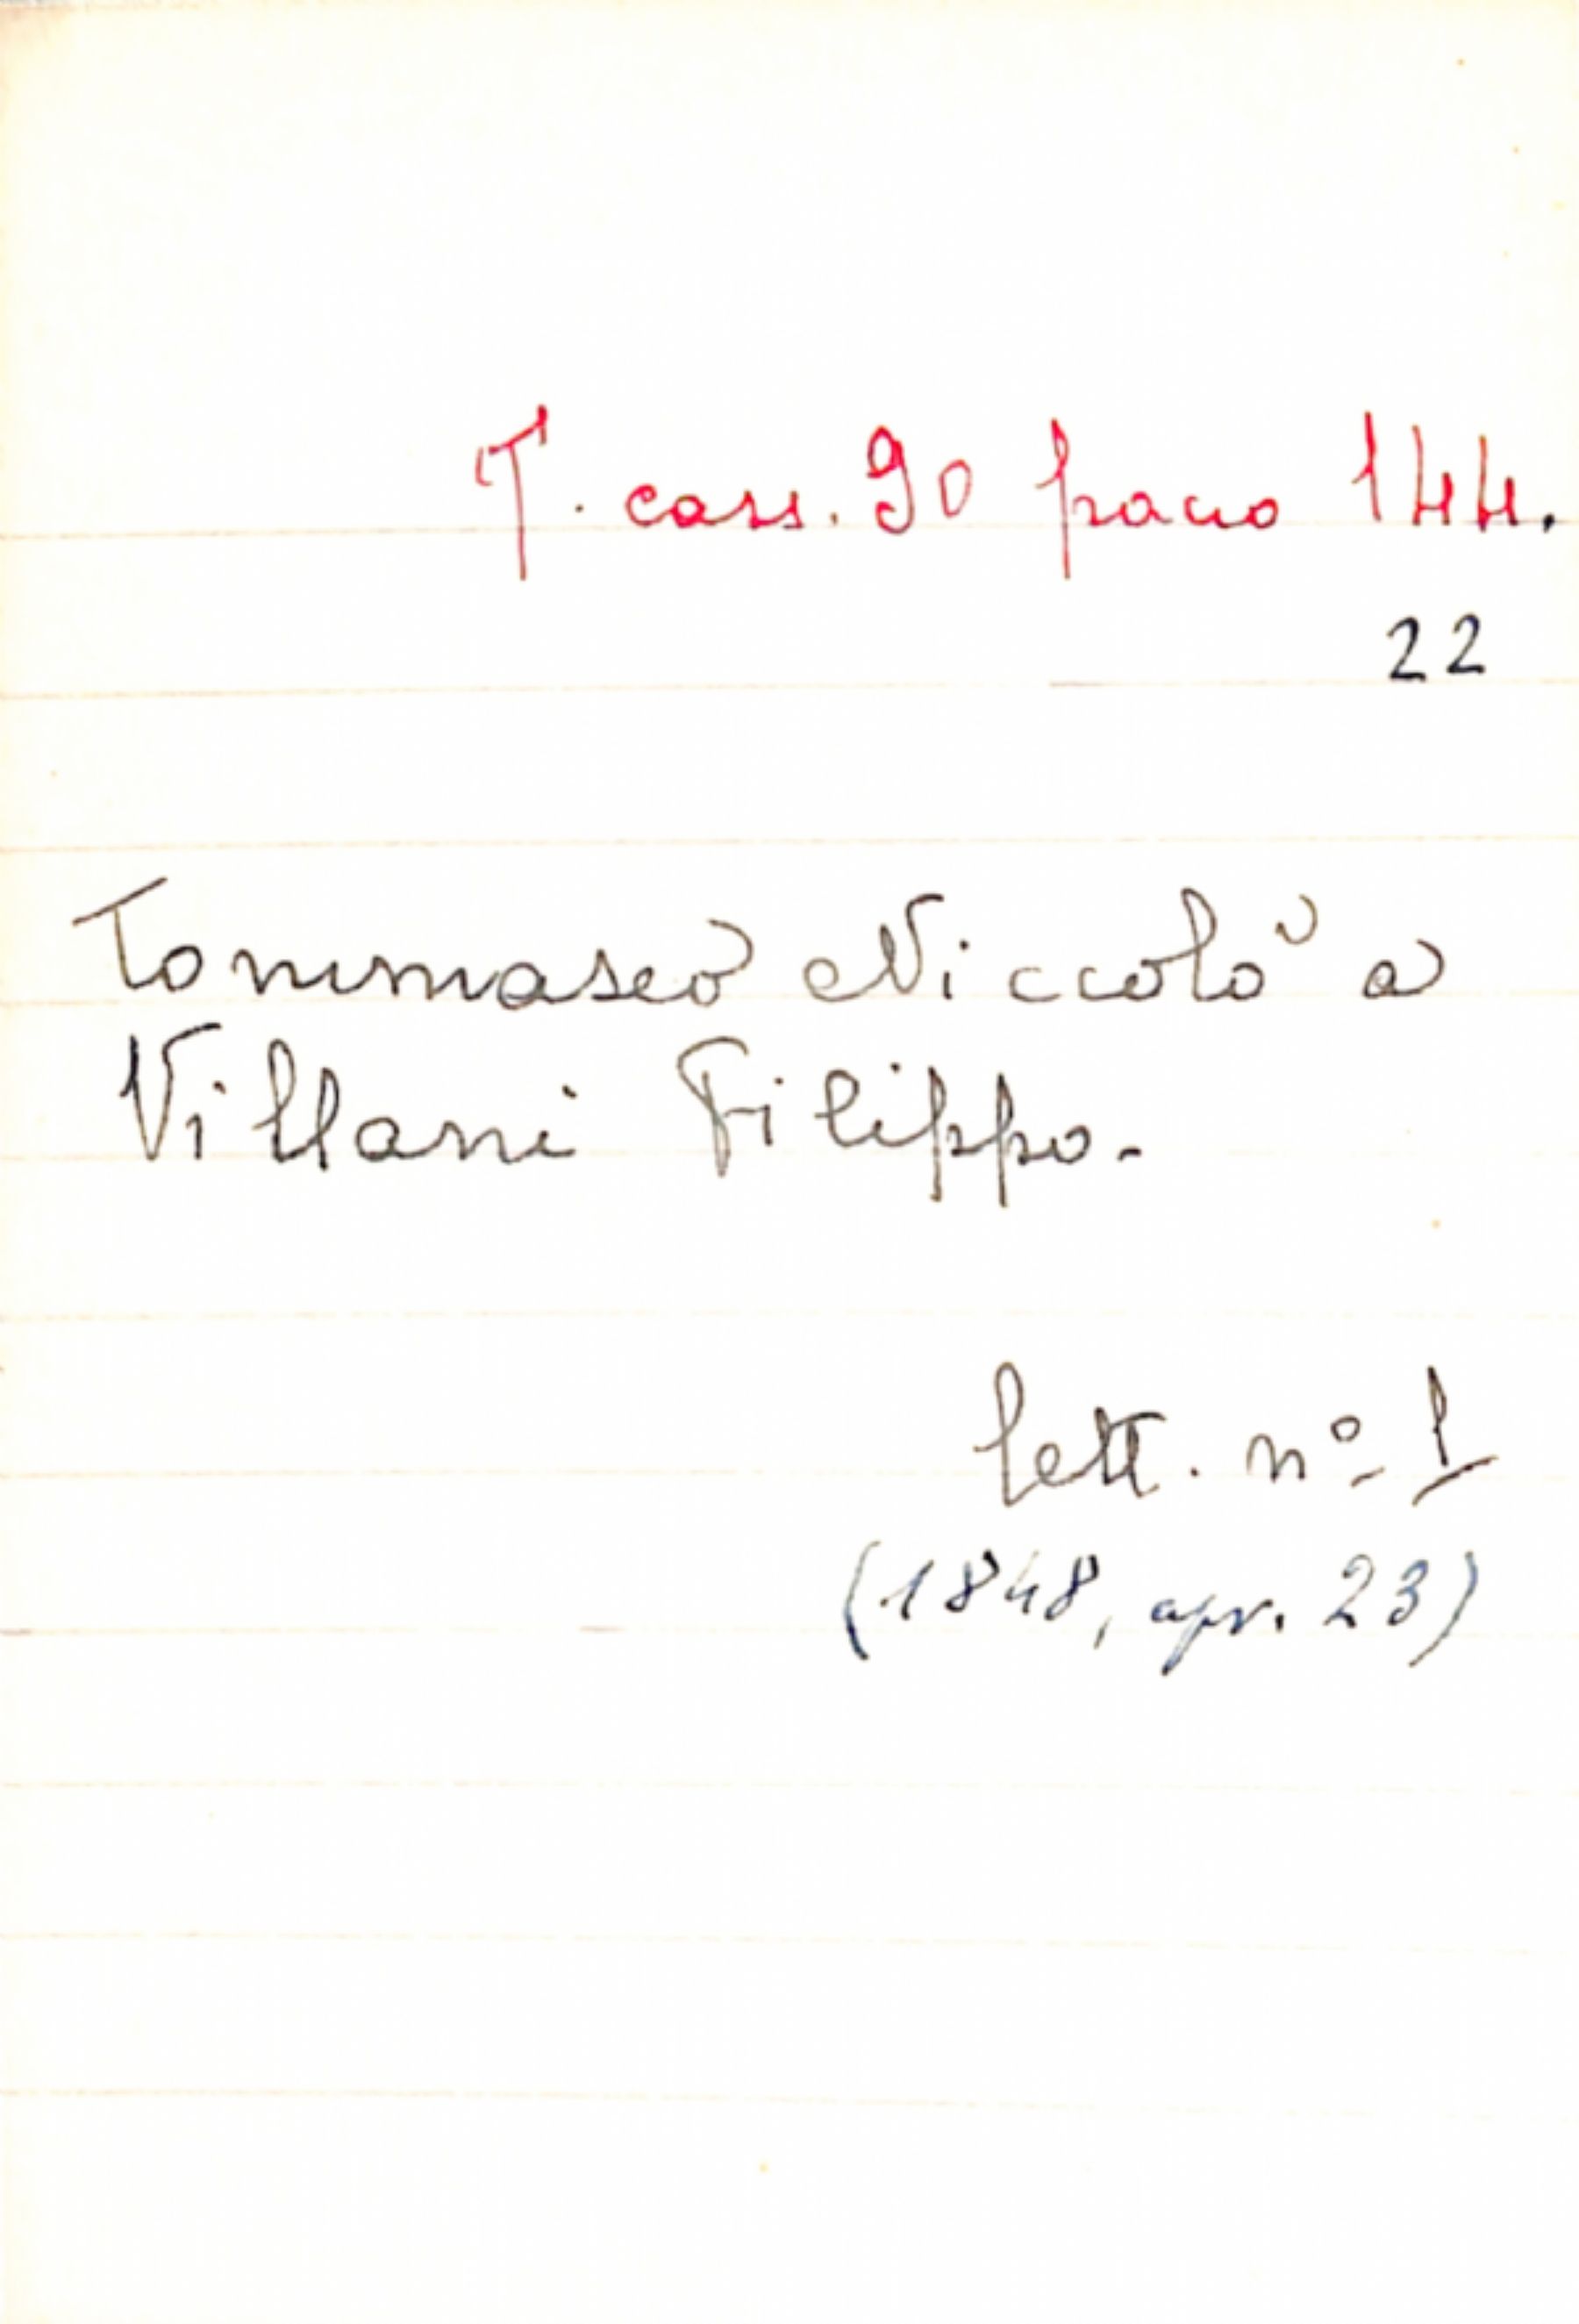 T. cass. 90 pacco 144.
22
Tommaseo Niccolò a
Villani Filippo.
lett. nº 1
(1848, apr. 23)